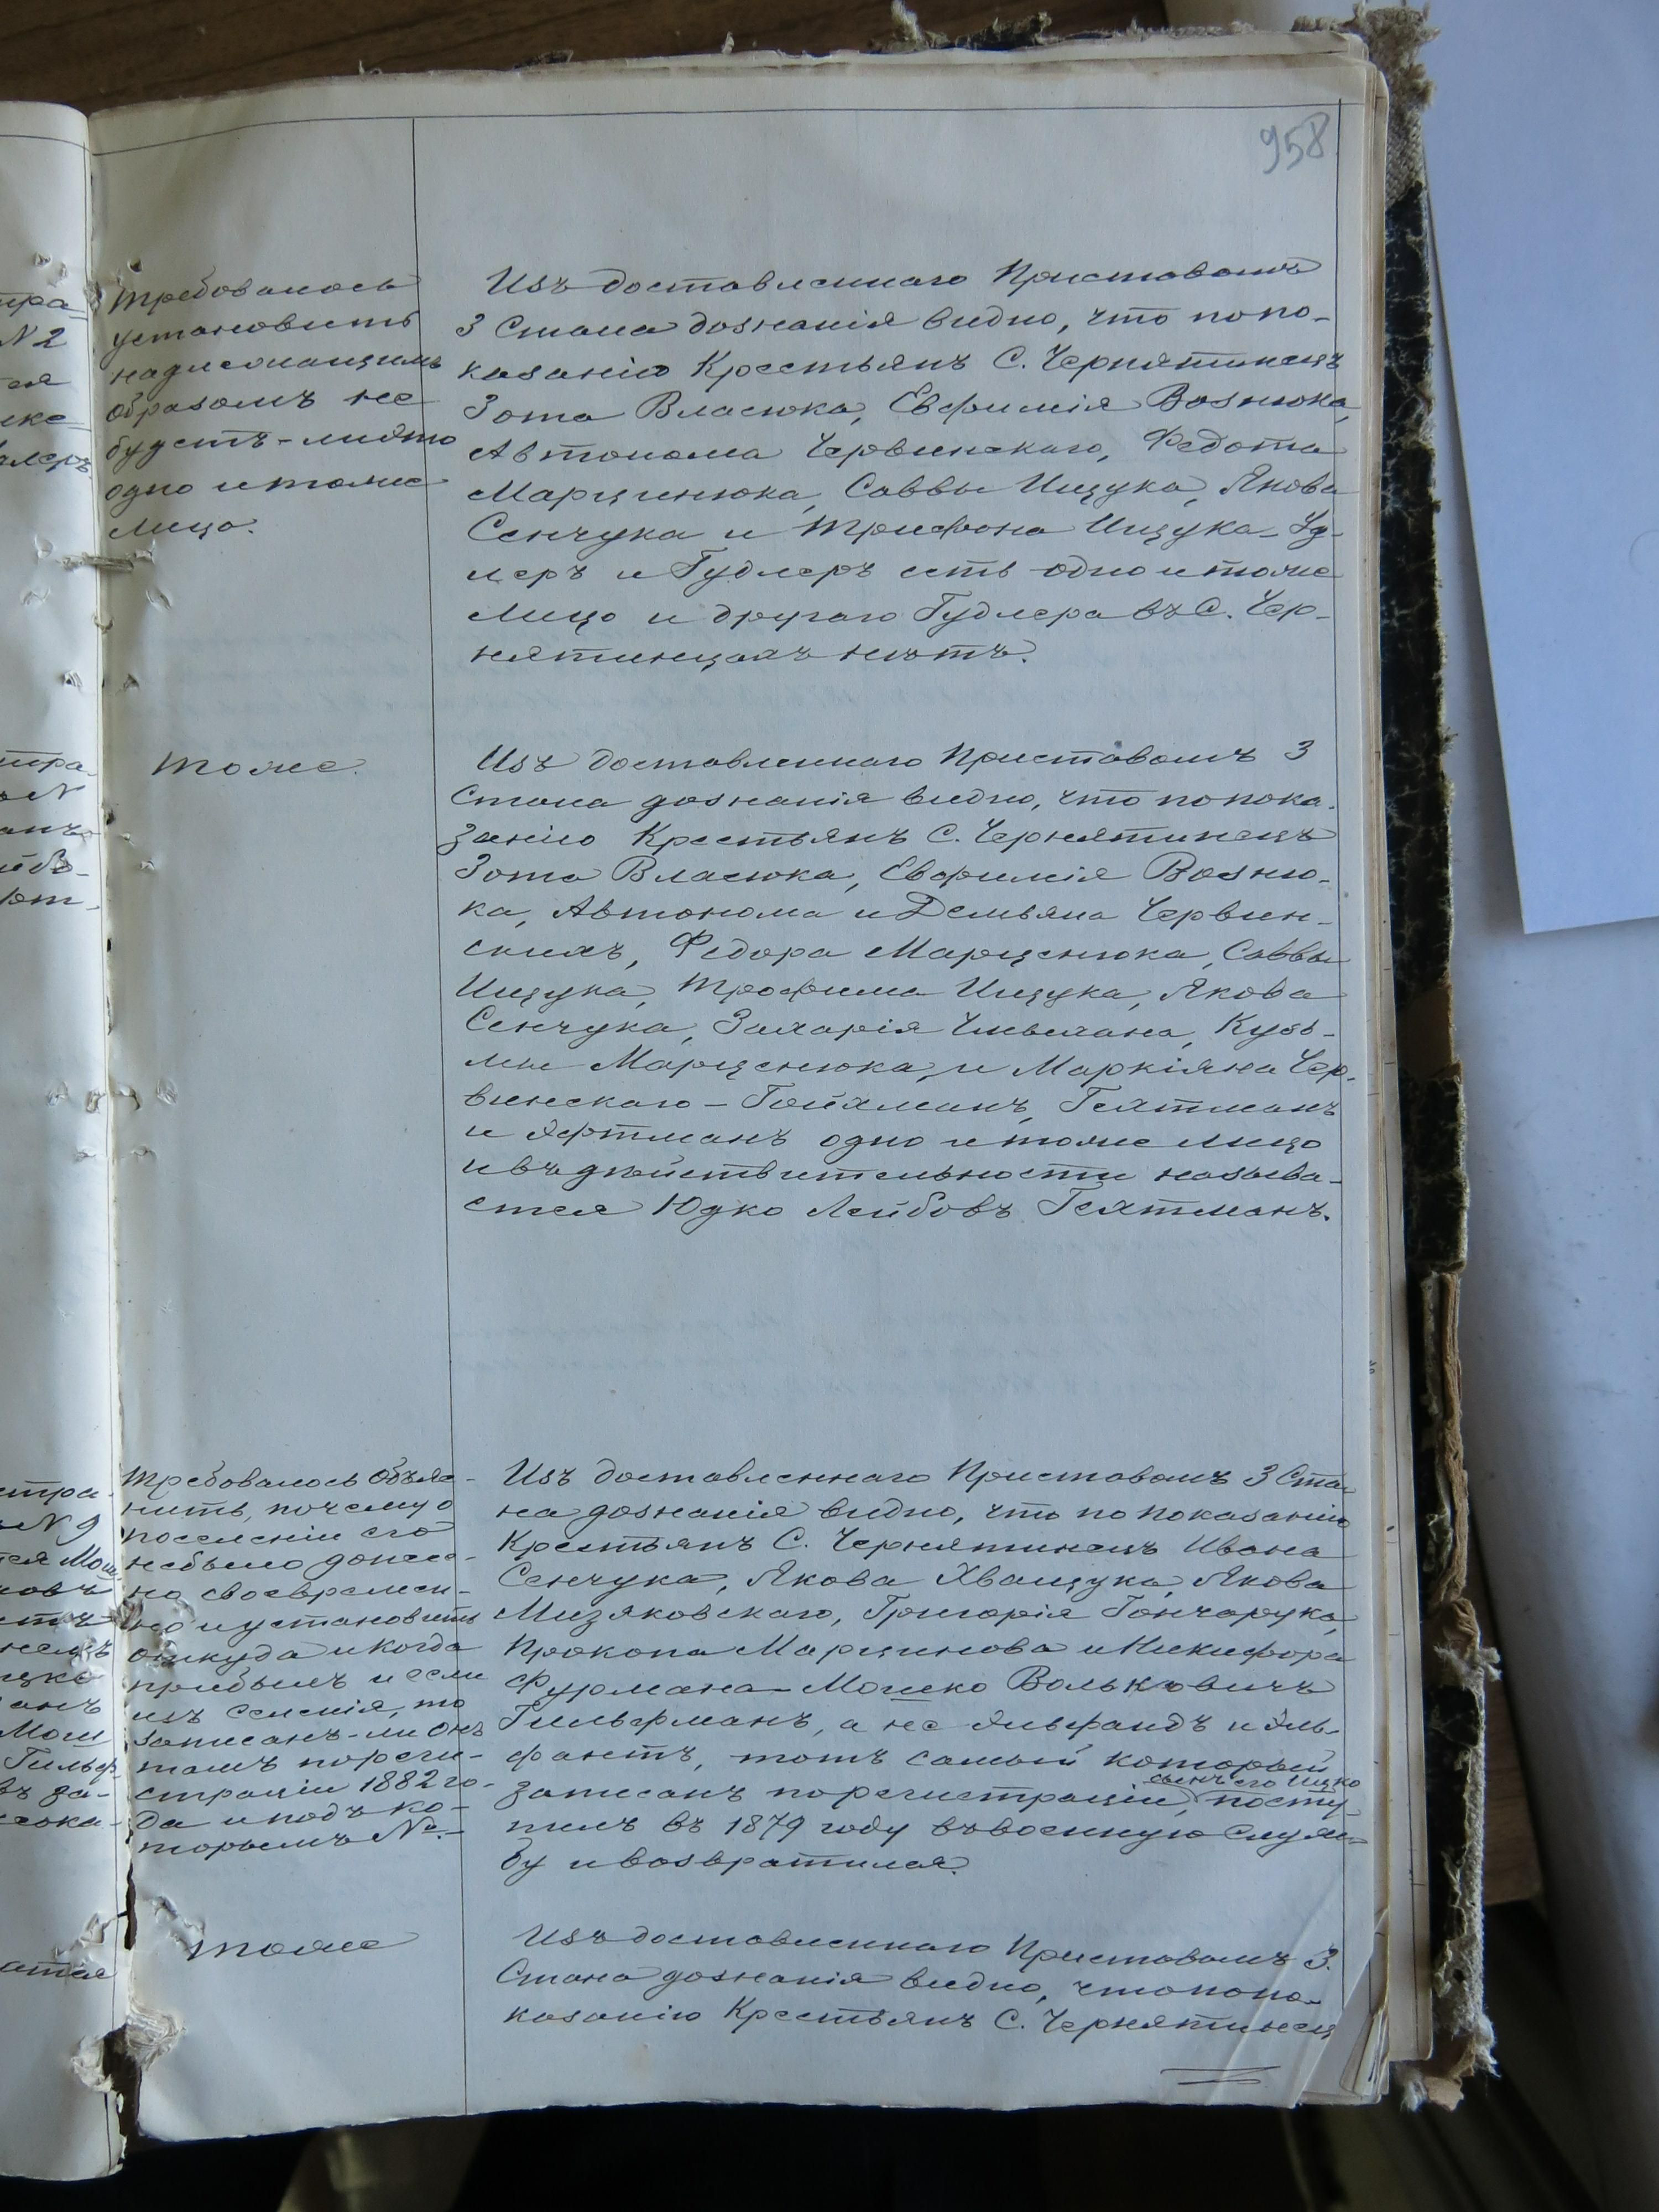 958
Требовалось
установить
надлежащимъ
образомъ не
будетъ-ли это
одно и тоже
лицо.
Изъ доставленнаго Приставомъ
3 Стана дознанія видно, что по по-
казанію Крестьянъ С. Чернятинецъ
Зота Власюка, Евфимія Вознюка,
Автонома Червинскаго, Федота
Марценюка, Саввы Ищука, Якова
Сенчука и Трифона Ищука - Уд-
леръ и Гудлеръ есть одно и тоже
лицо и другаго Гудлера въ С. Чер-
нятинцахъ нѣтъ.
Тоже.
Изъ доставленнаго Приставомъ 3
Стана дознанія видно, что по пока-
занію Крестьянъ С. Чернятинецъ
Зота Власюка, Евфимія Возню-
ка, Автонома и Демьяна Червин-
скихъ, Федора Марценюка, Саввы
Ищука, Трофима Ищука, Якова
Сенчука, Захарія Кузь-
мы Марценюка, и Маркіяна Чер-
винскаго - Гойхманъ, Гехтманъ
и одно и тоже лицо
и въ дѣйствительности называ-
ется Юдко Лейбовъ Гехтманъ.
Требовалось объяс-
нить, почему о
поселеніи его
небыло донесе-
но своевремен-
но и установить
откуда и когда
прибылъ и если
изъ селенія, то
записанъ-ли онъ
тамъ по реги-
страціи 1882 го-
да и подъ ко-
торымъ №.-
Изъ доставленнаго Приставомъ 3 Ста-
на дознанія видно, что по показанію
Крестьянъ С. Чернятинецъ Ивана
Сенчука, Якова Хващука, Якова
Мизяковскаго, Григорія Гончарука,
Прокопа Марцинова и Никифора
Фурмана - Мошко Вольковичъ
Гильфманъ, а не Эльфандъ и Эль-
фантъ, тотъ самый который
записанъ по регистраціи, сынъ его Ицко посту-
пилъ въ 1879 году въ военную служ-
бу и возвратился.
Тоже
Изъ доставленнаго Приставомъ 3.
Стана дознанія видно, что по по-
казанію Крестьянъ С. Чернятинецъ